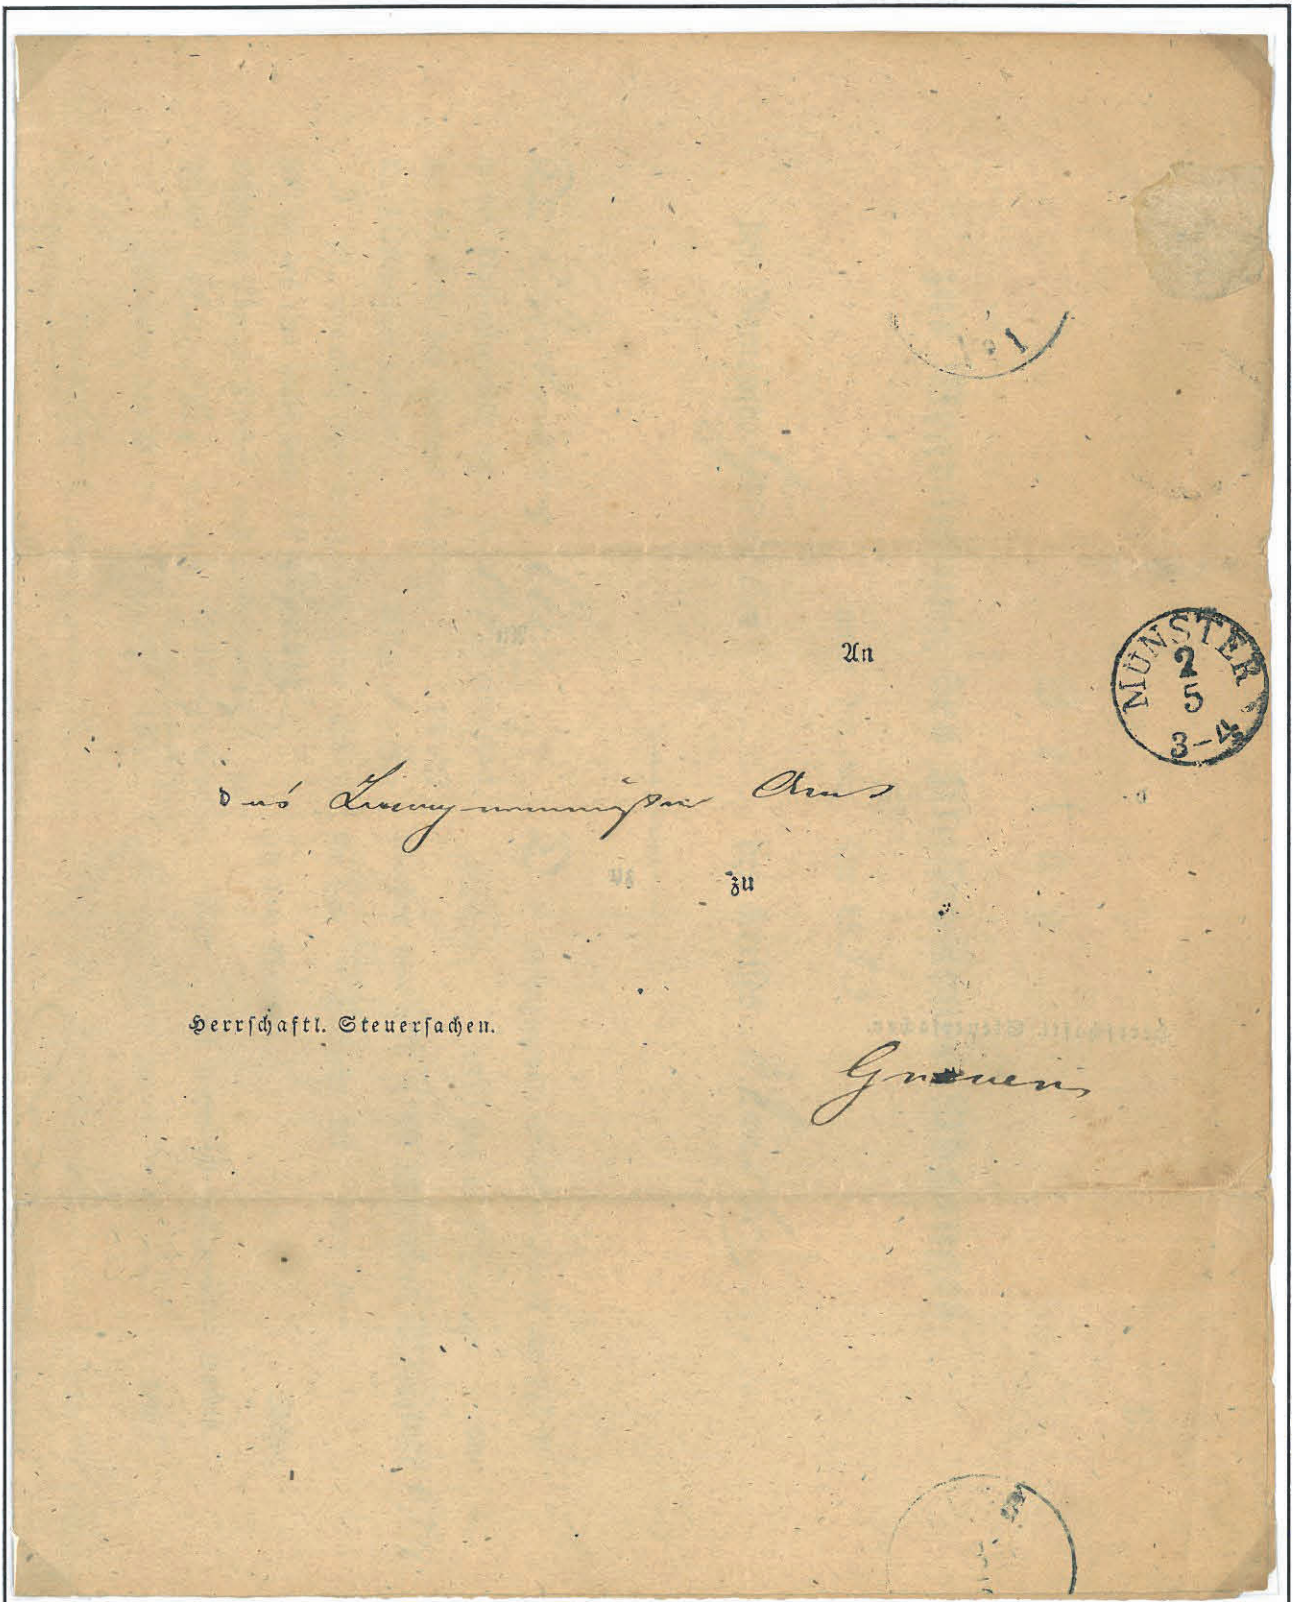 An
MÜNSTER
2
5
3-4
das Bürgermeister Amt
zu
Herrſchaftl. Steuerſachen.
Greven